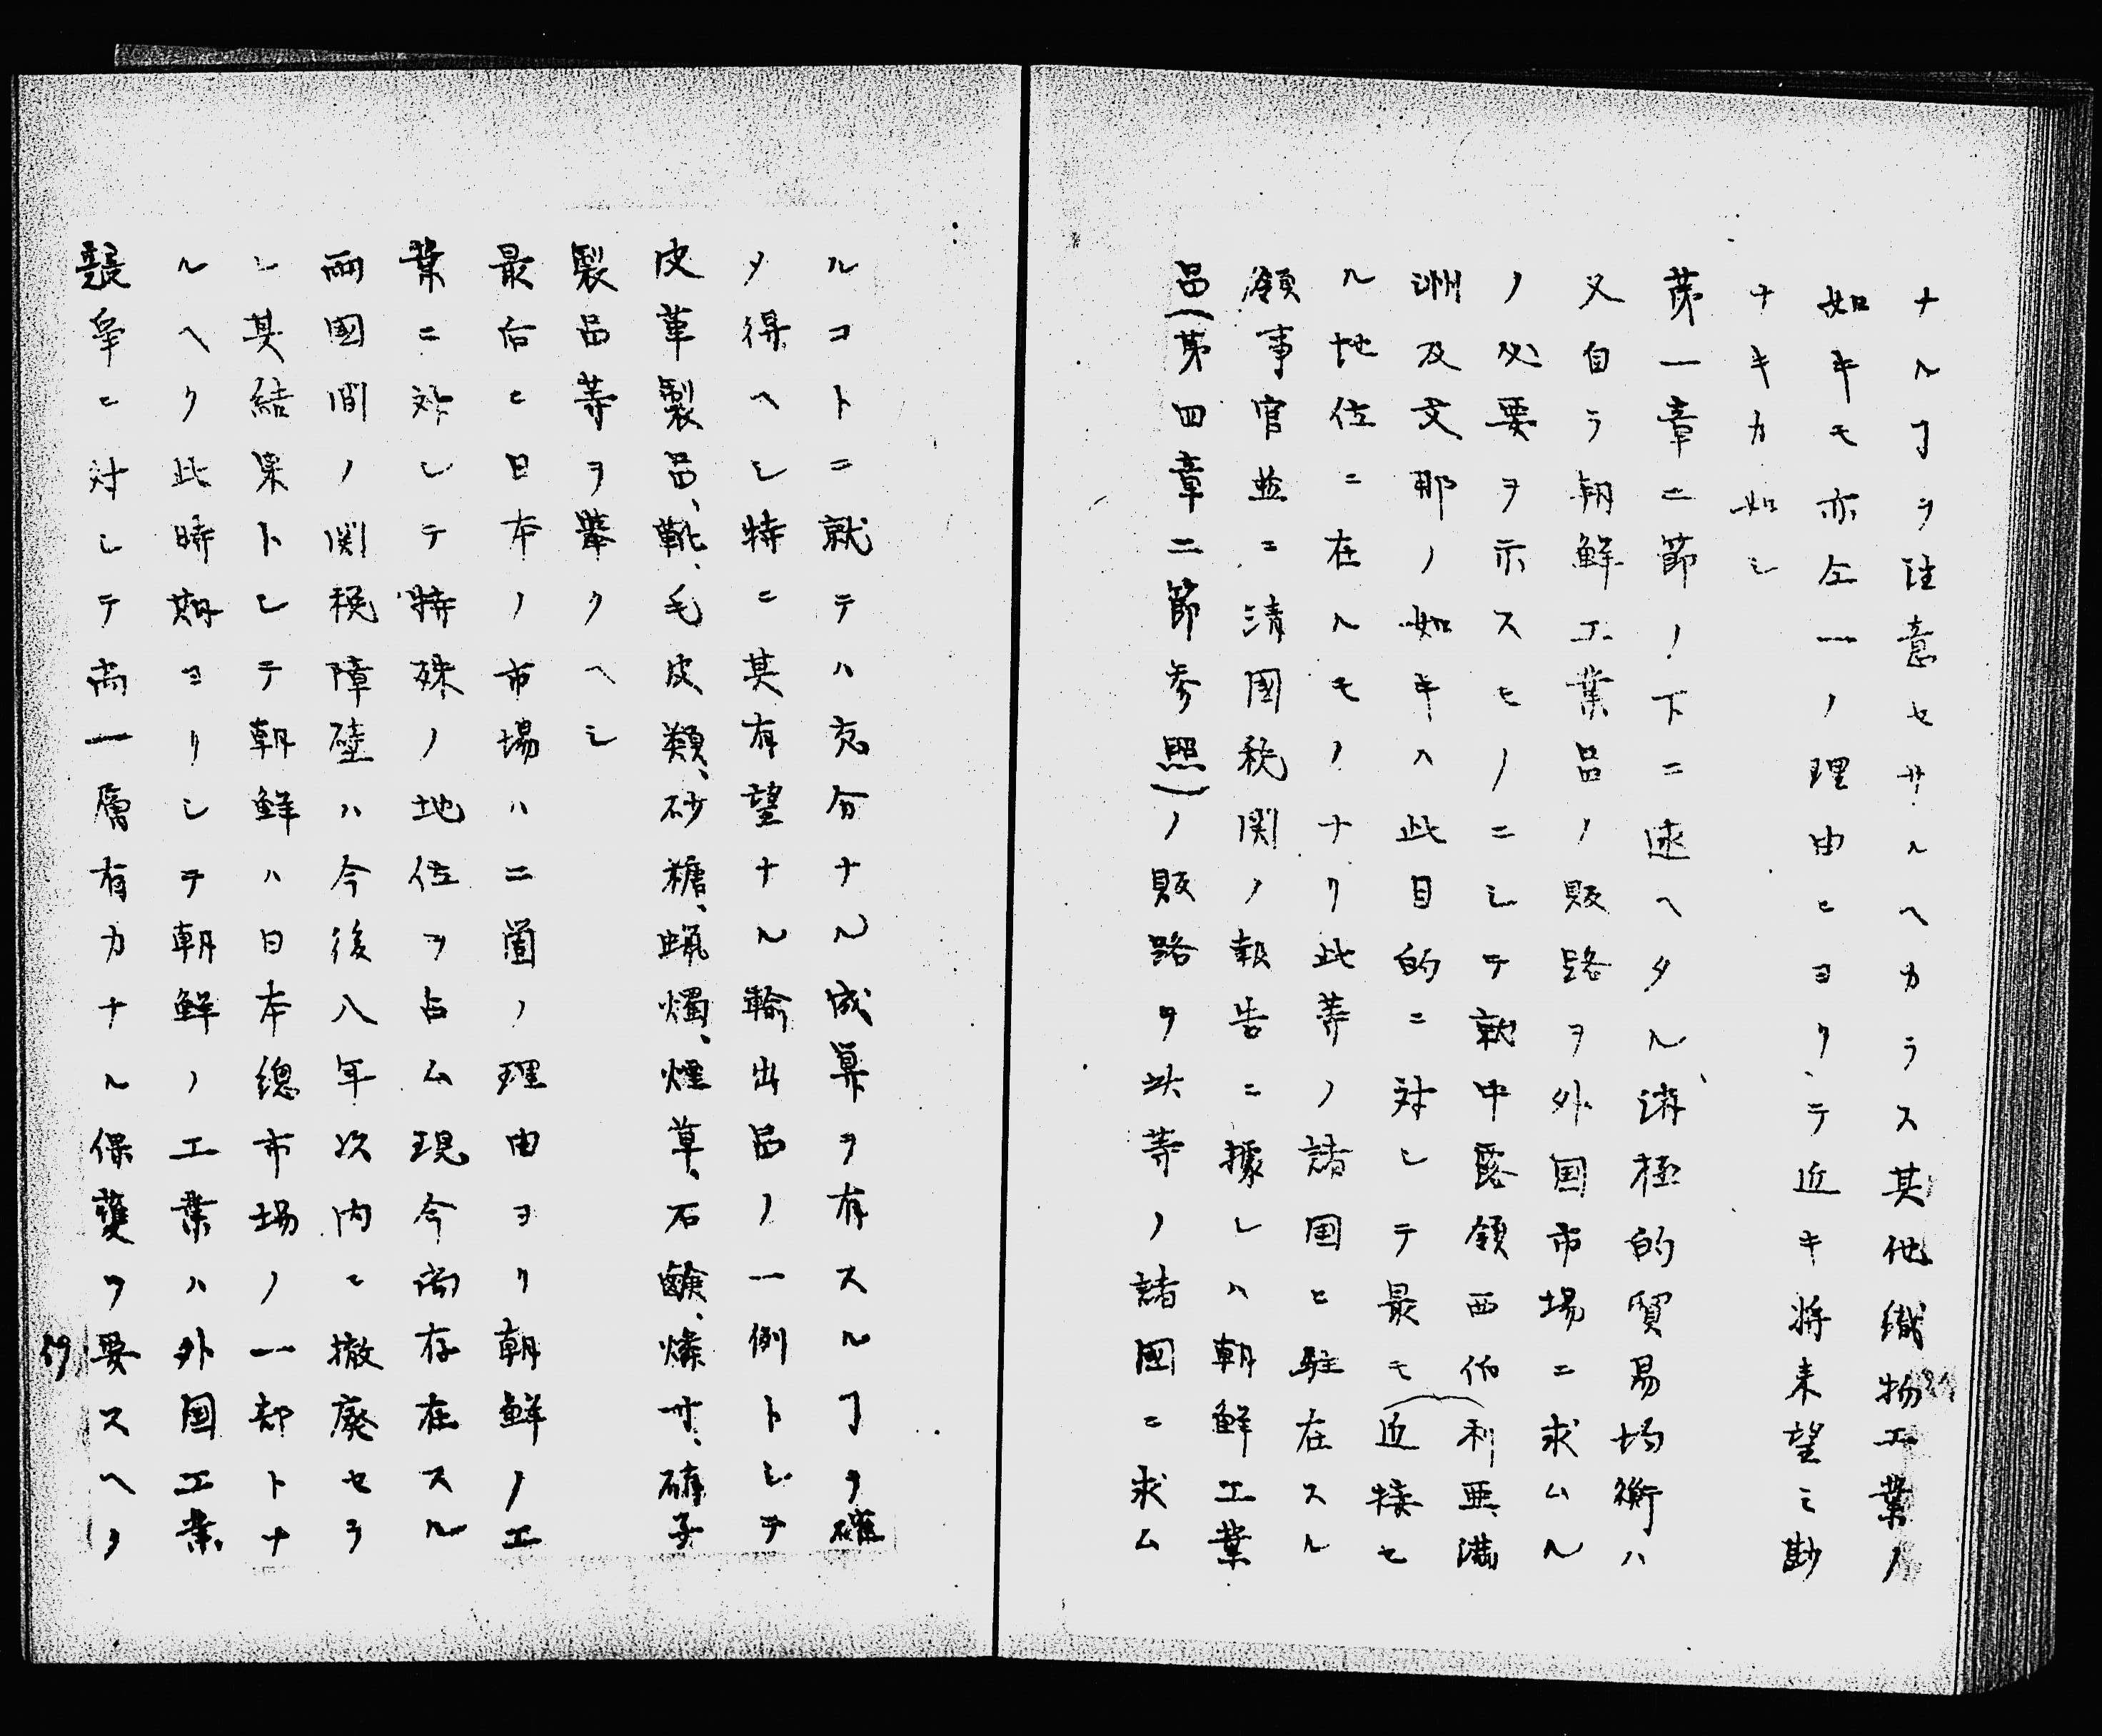 ナルヿヲ注意セサルヘカラス其他織物工業ノ
如キモ亦左一ノ理由ニヨリテ近キ将来望ミ尠
ナキカ如シ
第一章二節ノ下ニ述ヘタル消極的貿易均衡ハ
又自ラ朝鮮工業品ノ販路ヲ外国市場ニ求ムル
ノ必要ヲ示スモノニシテ就中露領西伯利亜満
洲及支那ノ如キハ此目的ニ対シテ最モ近接セ
ル地位ニ在ルモノナリ此等ノ諸国ニ駐在スル
領事官並ニ清國税関ノ報告ニ據レハ朝鮮工業
品(第四章二節参照)ノ販路ヲ此等ノ諸國ニ求ム
ルコトニ就テハ充分ナル成算ヲ有スルヿヲ確
メ得ヘシ特ニ其有望ナル輸出品ノ一例トシテ
皮革製品、靴、毛皮類、砂糖、蝋燭、煙草、石鹸、燐寸、硝子
製品等ヲ挙クヘシ
最后ニ日本ノ市場ハ二箇ノ理由ヨリ朝鮮ノ工
業ニ対シテ特殊ノ地位ヲ占ム現今尚存在スル
両國間ノ関税障壁ハ今後八年次内ニ撤廃セラ
レ其結果トシテ朝鮮ハ日本總市場ノ一部トナ
ルヘク此時期ヨリシテ朝鮮ノ工業ハ外国工業
競争ニ対シテ尚一層有力ナル保護ヲ要スヘク